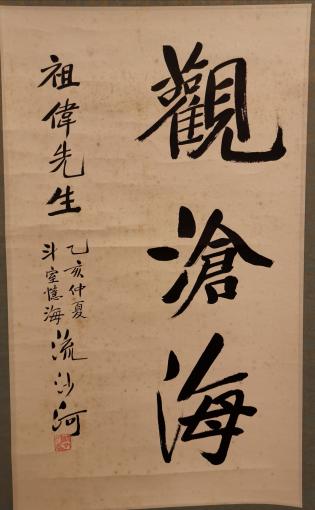 觀滄海
祖偉先生
乙亥仲夏
斗室憶海
流沙河